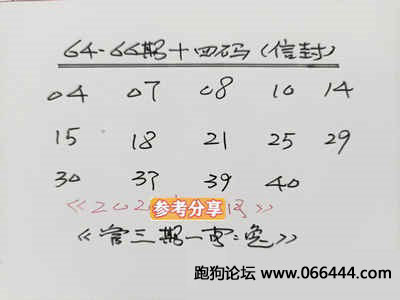 64-66期十四码(信封)
04 07 08 10 14
15 18 21 25 29
30 37 39 40
《202
参考分享
》
《管三期一肖:兔》
跑狗论坛 www.066444.com